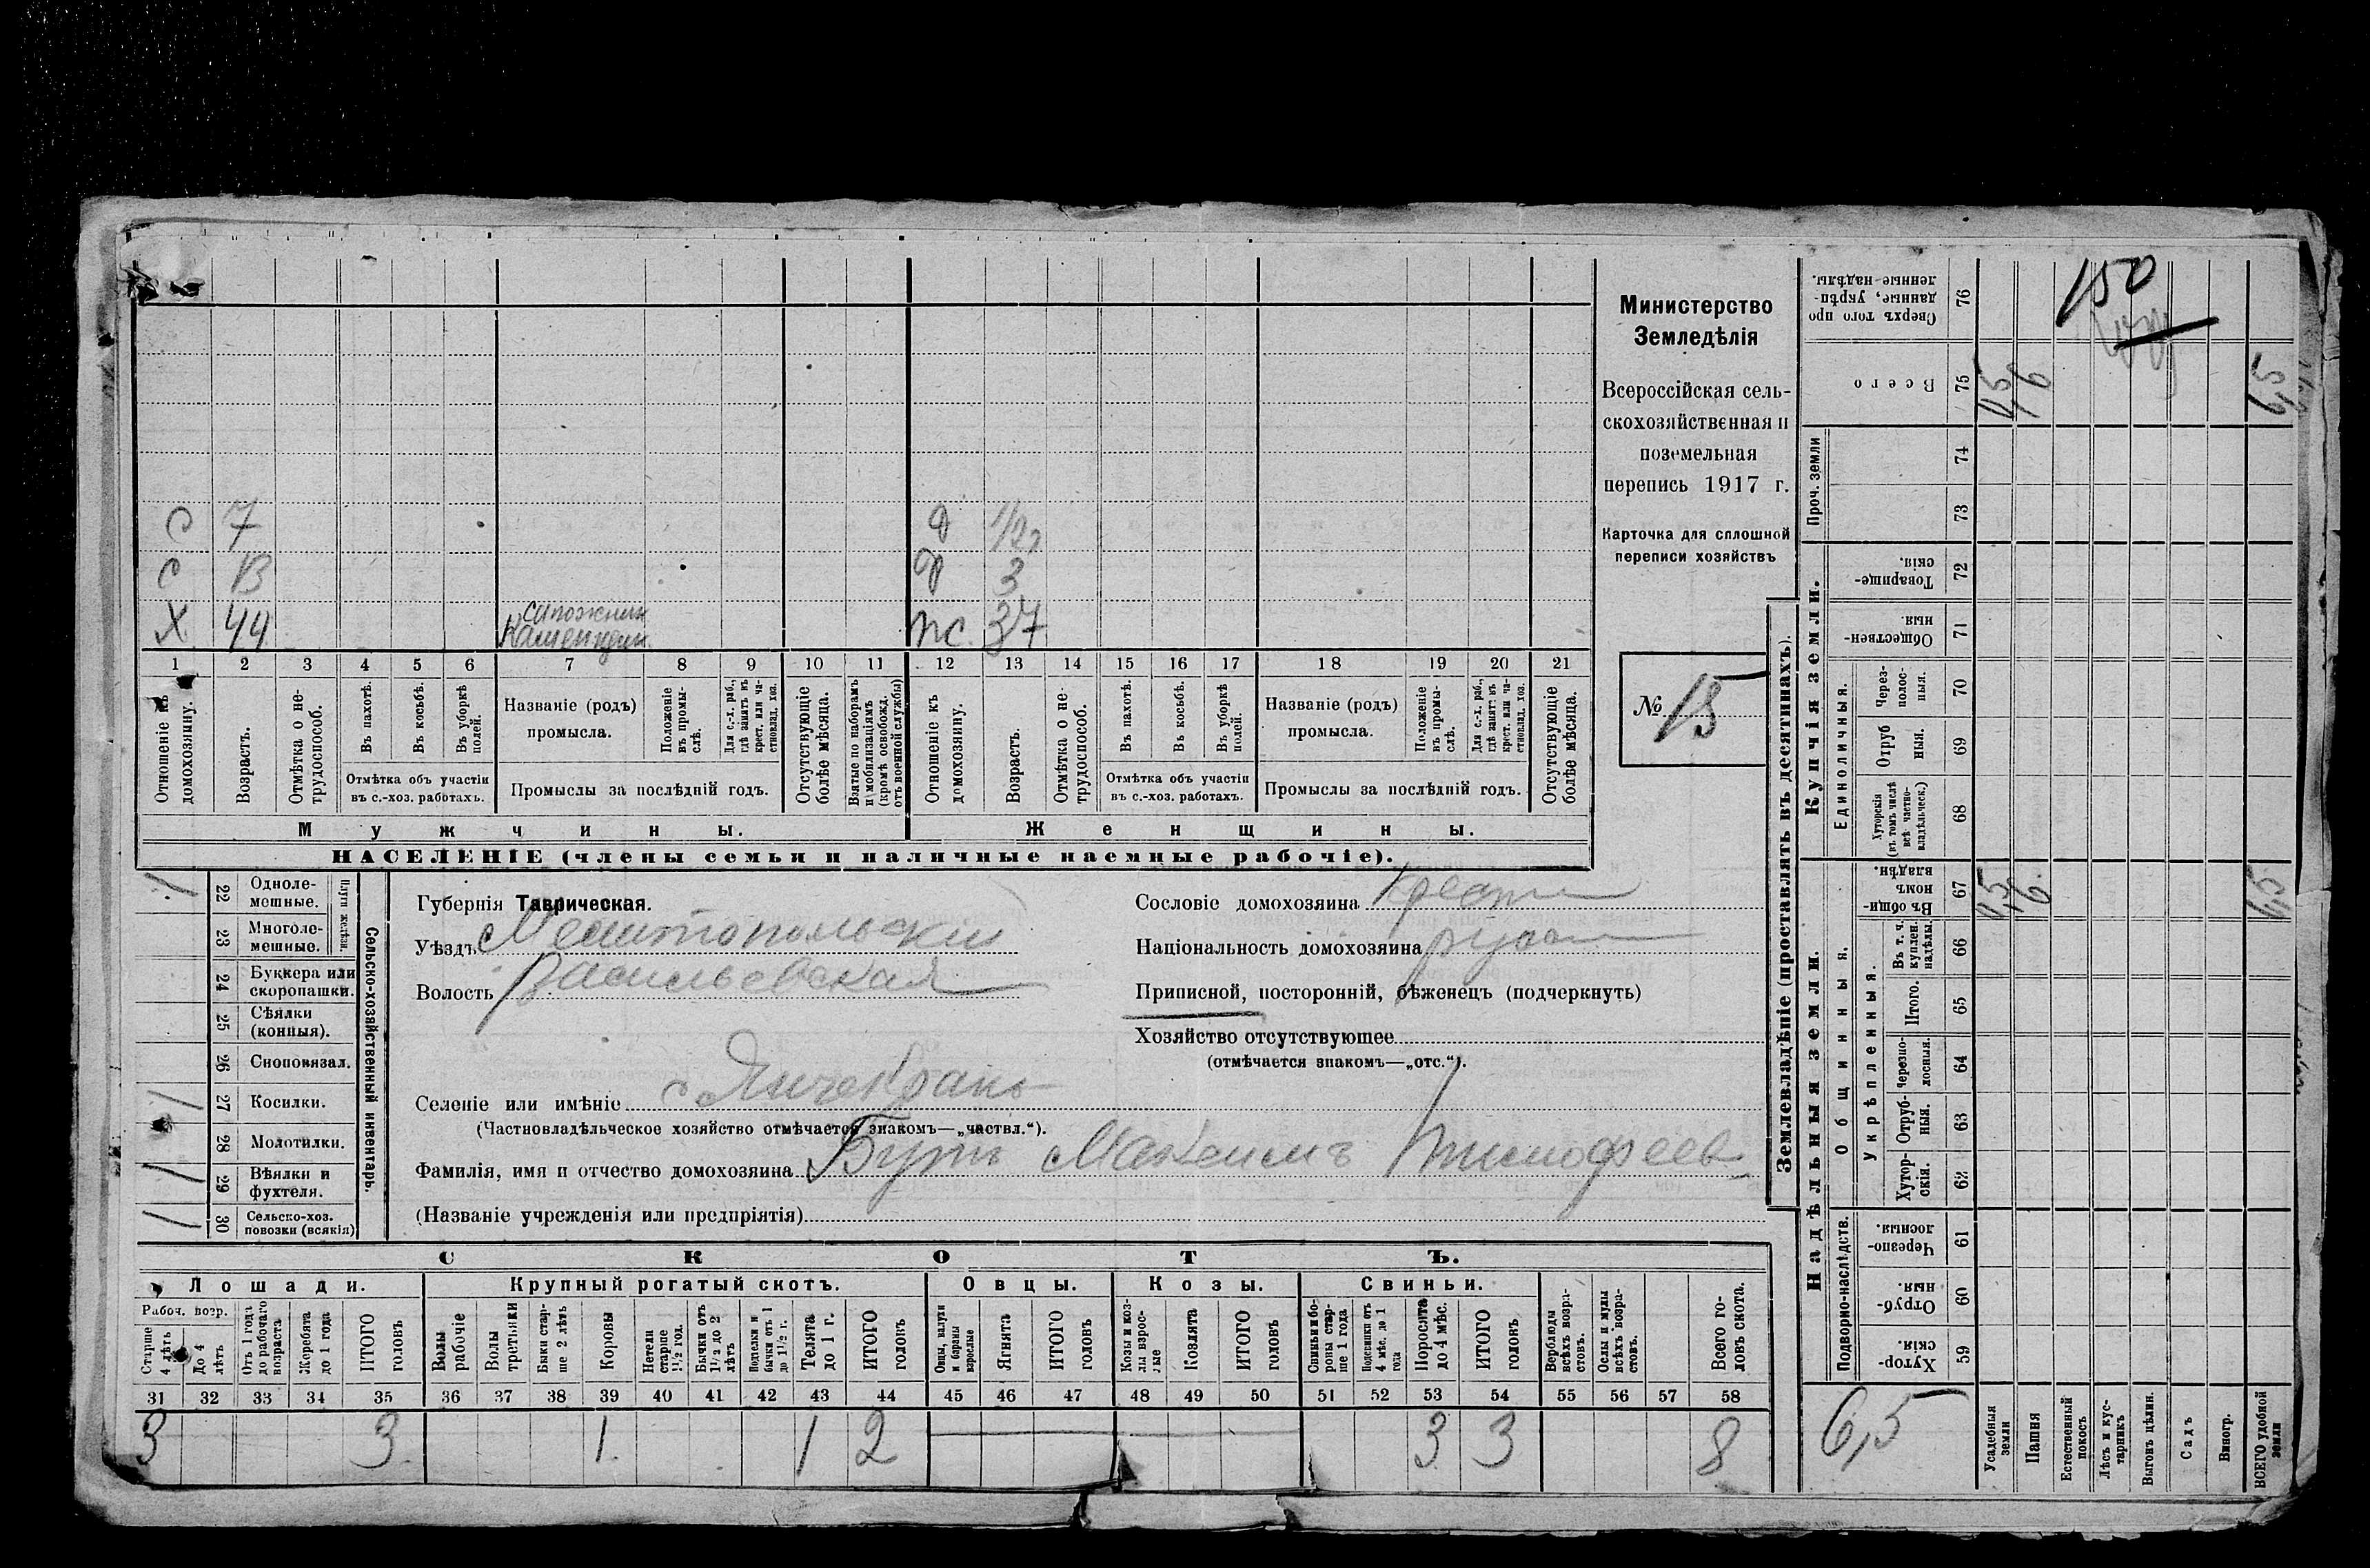 Министерство
Земледѣлія
Всероссійская сель-
скохозяйственная и
поземельная
перепись 1917 г.
Карточка для сплошной
переписи хозяйствъ
№ 13
с 7 д 1/2
с 13 д 3
х 44 сапожник ж 37
1 2 3 4 5 6 7 8 9 10 11 12 13 14 15 16 17 18 19 20 21
Отношеніе къ домохозяину.
Возрастъ.
Отмѣтка о не-трудоспособ.
Въ пахотѣ.
Въ косьбѣ.
Въ уборкѣ полей.
Отмѣтка объ участіи въ с.-хоз. работахъ.
Названіе (родъ) промысла.
Положеніе въ промы-слѣ.
Для с.-х. раб., гдѣ занятъ въ крест. или ча-стновлад. хоз.
Промыслы за послѣдній годъ.
Отсутствующіе болѣе мѣсяца.
Взятые по наборамъ и мобилизаціямъ (кромѣ освобожд. отъ военной службы)
Отношеніе къ домохозяину.
Возрастъ.
Отмѣтка о не-трудоспособ.
Въ пахотѣ.
Въ косьбѣ.
Въ уборкѣ полей.
Отмѣтка объ участіи въ с.-хоз. работахъ.
Названіе (родъ) промысла.
Положеніе въ промы-слѣ.
Для с.-х. раб., гдѣ занят. въ крест. или ча-стновлад. хоз.
Промыслы за послѣдній годъ.
Отсутствующіе болѣе мѣсяца.
Мужчины.
Женщины.
НАСЕЛЕНІЕ (члены семьи и наличные наемные рабочіе).
Сельско-хозяйственный инвентарь.
Плуги желѣзн.
1 22 Одноле-мешные.
23 Многоле-мешные.
24 Буккера или скоропашки.
25 Сѣялки (конныя).
26 Сноповязал.
1 27 Косилки.
28 Молотилки.
1 29 Вѣялки и фухтеля.
1 30 Сельско-хоз. повозки (всякія)
Губернія Таврическая.
Уѣздъ Мелитопольскій
Волость Васильевская
Сословіе домохозяина крест
Національность домохозяина русс
Приписной, посторонній, бѣженецъ (подчеркнуть)
Хозяйство отсутствующее
(отмѣчается знакомъ—„отс.“).
Селеніе или имѣніе с Янчекракъ
(Частновладѣльческое хозяйство отмѣчается знакомъ—„частвл.“).
Фамилія, имя и отчество домохозяина Бутъ Максимъ Тимофеев
(Названіе учрежденія или предпріятія)
СКОТЪ.
Лошади. Крупный рогатый скотъ. Овцы. Козы. Свиньи.
Рабоч. возр.
Старше 4 лѣтъ
До 4 лѣтъ
Отъ 1 года до рабочаго возраста
Жеребята до 1 года
ИТОГО головъ
Волы рабочіе
Волы третьяки
Быки стар-ше 2 лѣтъ
Коровы
Нетели старше 1½ год.
Бычки отъ 1½ до 2 лѣтъ
Подтелки и бычки отъ 1 до 1½ г.
Телята до 1 г.
ИТОГО головъ
Овцы, валухи и бараны взрослые
Ягнята
ИТОГО головъ
Козы и коз-лы взрос-лые
Козлята
ИТОГО головъ
Свиньи и бо-ровы стар-ше 1 года
Подсвинки отъ 4 мѣс. до 1 года
Поросята до 4 мѣс.
ИТОГО головъ
Верблюды всѣхъ возра-стовъ.
Ослы и мулы всѣхъ возра-стовъ.
Всего го-ловъ скота.
31 32 33 34 35 36 37 38 39 40 41 42 43 44 45 46 47 48 49 50 51 52 53 54 55 56 57 58
3 3 1 1 2 3 3 8
Землевладѣніе (проставлять въ десятинахъ).
Купчія земли.
Надѣльныя земли.
Сверхъ того про данные, укрѣп-ленные надѣлы. 76
150
Всего 75
Проч. земли 74
73
Товарище-скія. 72
Обществен-ныя. 71
Единоличныя.
Через-полос-ныя. 70
Отруб ныя. 69
Хуторскія (въ томъ числѣ всѣ частно-владѣльческ.) 68
Общинныя.
Въ общи-номъ владѣн. 67
Укрѣпленныя.
Въ т. ч. куплен. надѣлы. 66
Итого. 65
Черезпо-лосныя. 64
Отруб-ныя. 63
Хутор-скія. 62
Подворно-наслѣдств.
Черезпо-лосныя. 61
Отруб-ныя. 60
Хутор-скія. 59
6,5
Усадебныя земли
Пашня
Естественный покосъ
Лѣсъ и кус-тарникъ
Выгонъ цѣлин.
Садъ
Виногр.
ВСЕГО удобной земли